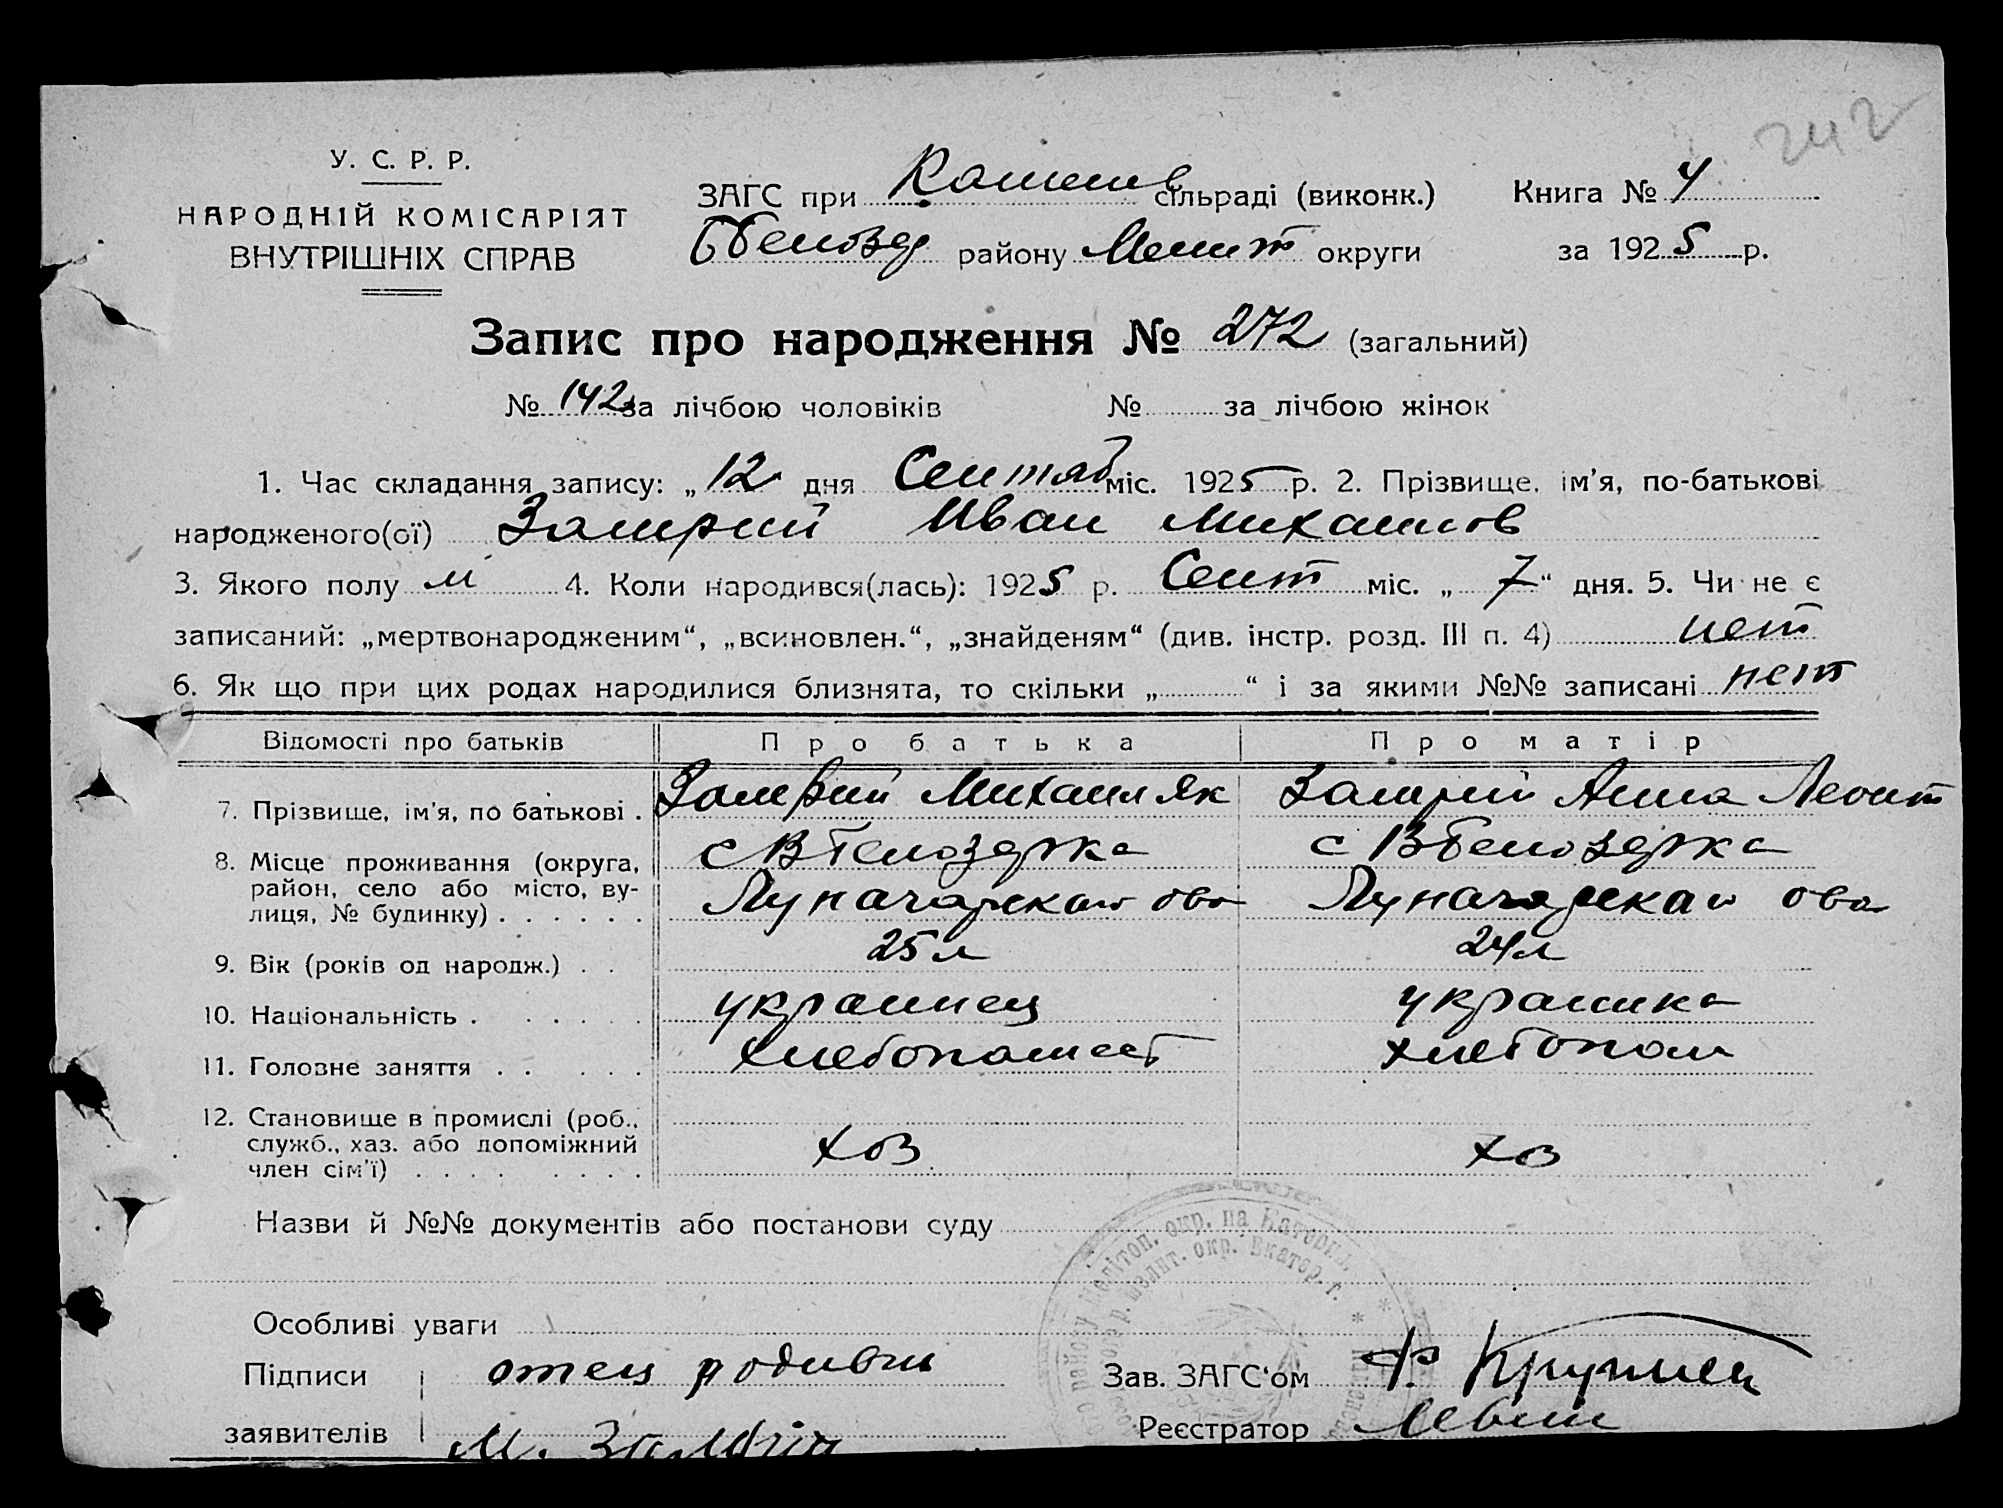 242
У. С. Р. Р.
НАРОДНІЙ КОМІСАРІЯТ
ВНУТРІШНІХ СПРАВ
ЗАГС при сільраді (виконк.) Книга № 4
району Мелит округи за 1925 р.
Запис про народження № 272 (загальний)
№ 142 за лічбою чоловіків № за лічбою жінок
1. Час складання запису: „12 дня Сентяб міс. 1925 р. 2. Прізвище, ім'я, по-батькові
народженого(ої) Замрий Иван Михаилов
3. Якого полу м 4. Коли народився(лась): 1925 р. Сент міс. „7“ дня. 5. Чи не є
записаний: „мертвонародженим“, „всиновлен.“, „знайденям“ (див. інстр. розд. III п. 4) нет
6. Як що при цих родах народилися близнята, то скільки „ “ і за якими №№ записані нет
Відомості про батьків Про батька Про матір
7. Прізвище, ім'я, по батькові . Замрий Михаил Як Замрий Анна Леонт
8. Місце проживання (округа, с В Белозерка с В Белозерка
район, село або місто, ву-
лиця, № будинку) . . . . . . Луначарская Луначарская
9. Вік (років од народж.) . . 25 л 24 л
10. Національність . . . . . . украинец украинка
11. Головне заняття . . . . . хлебопашест хлебопаш
12. Становище в промислі (роб.,
служб., хаз. або допоміжний хоз хоз
член сім'ї) . . . . . . . .
Назви й №№ документів або постанови суду
Особливі уваги
Підписи отец Зав. ЗАГС'ом
заявителів М. Замрій Реєстратор Левин